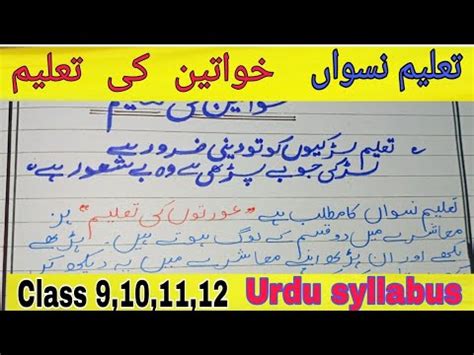 تعلیم نسواں خواتین کی تعلیم
خواتین کی تعلیم
تعلیم لڑکیوں کو تو دینی ضرور ہے
لڑکی جو بے پڑھی ہے وہ بے شعور ہے۔
تعلیم نسواں کا مطلب ہے "عورتوں کی تعلیم" ہر
معاشرے میں دو قسم کے لوگ ہوتے ہیں۔ پڑھے
لکھے اور ان پڑھ اپنے معاشرے میں یہ دیکھا
Class 9,10,11,12 Urdu syllabus